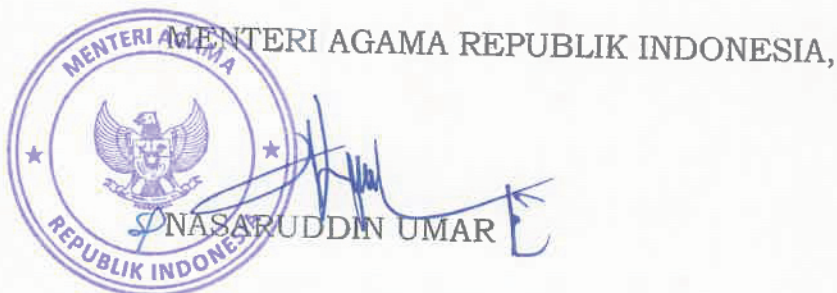 MENTERI AGAMA REPUBLIK INDONESIA,
MENTERI AGAMA
REPUBLIK INDONESIA
NASARUDDIN UMAR